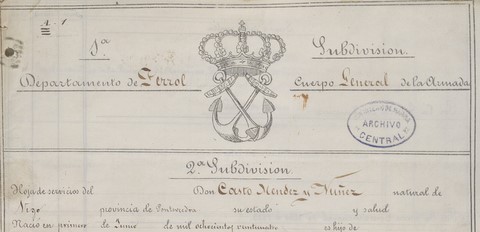 1ª Subdivision.
Departamento de Ferrol Cuerpo General de la Armada
ARCHIVO
CENTRAL
2ª Subdivision.
Hoja de servicios del Don Casto Mendez y Nuñez natural de
Vigo provincia de Pontevedra su estado y salud
Nació en primero de Junio de mil ochocientos veinticuatro es hijo de